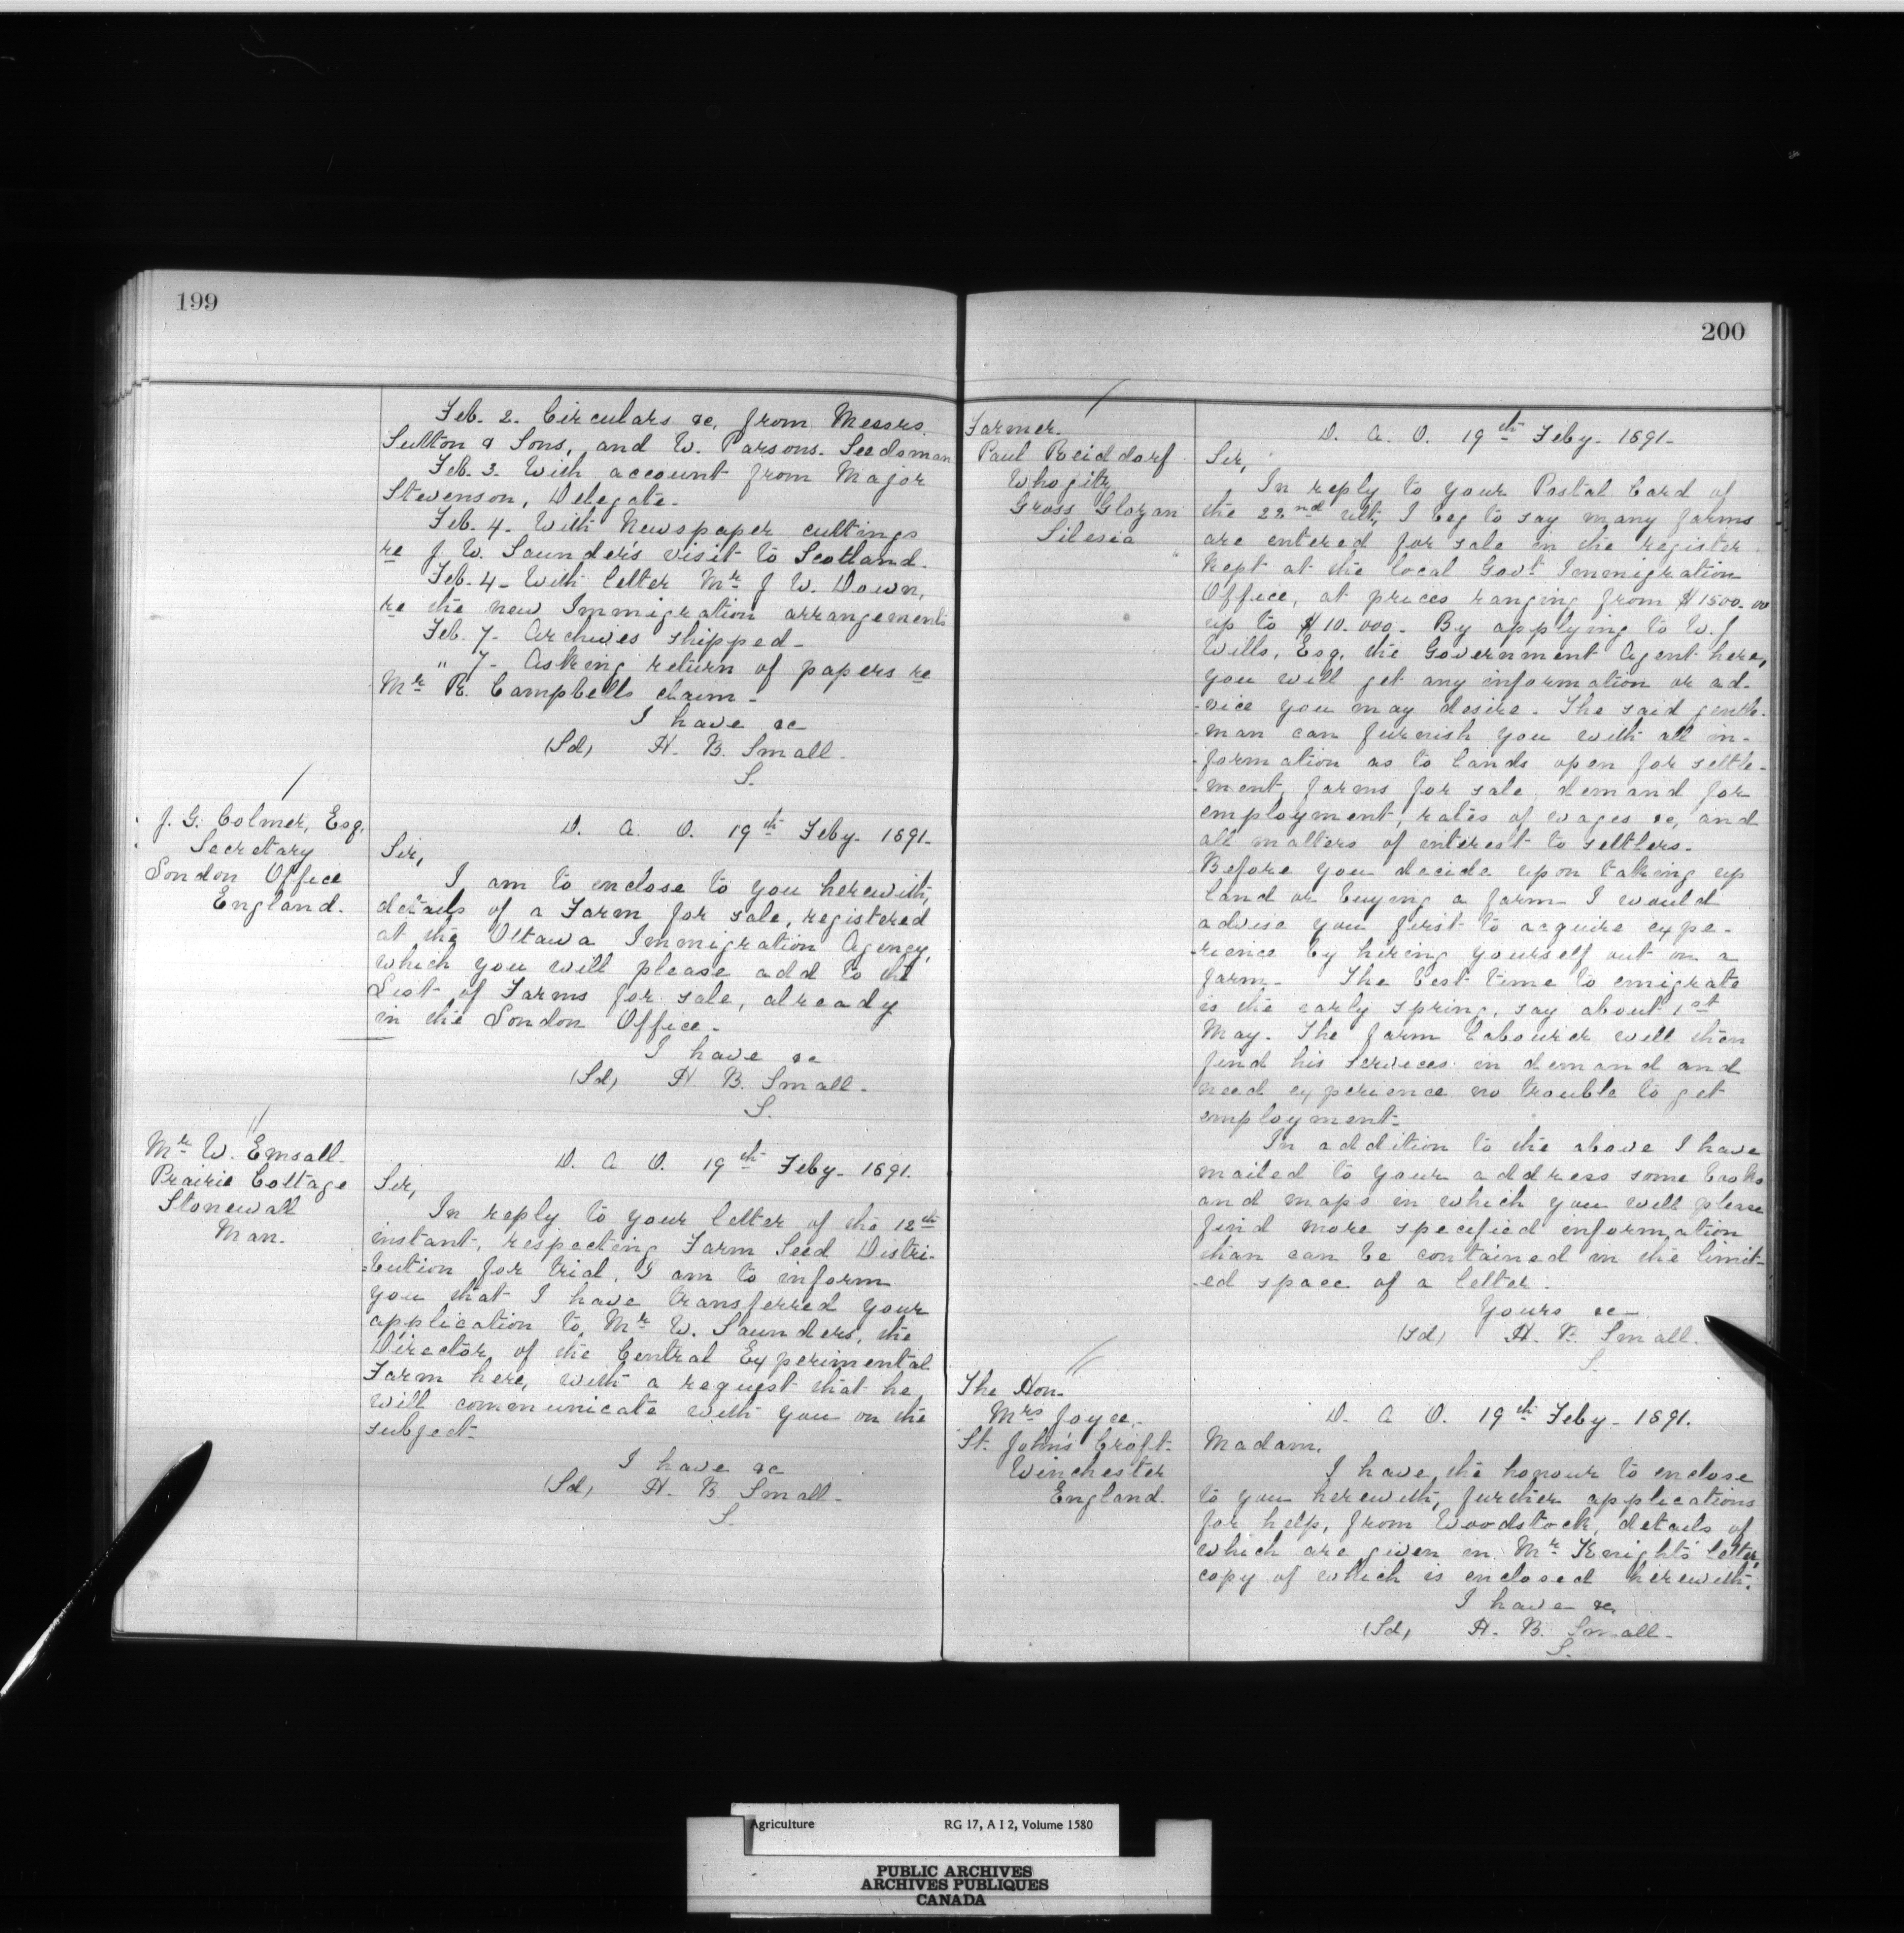 199
Feb. 2. Circulars &c, from Messrs.
Sutton & Sons, and W. Parsons. Seedsman
Feb. 3. With account from Major
Stevenson, Delegate.
Feb. 4. With Newspaper cuttings
re J. W. Saunder's visit to Scotland.
Feb. 4 - With letter Mr J W. Down,
re the new Immigration arrangements
Feb. 7. Archives shipped -
" 7 - Asking return of papers re
Mr R. Campbells claim -
I have &c
(Sd) H. B. Small.
S.
J. G. Colmer, Esq.
Secretary
London Office
England.
D. A. O. 19th Feby. 1891.
Sir,
I am to enclose to you herewith,
details of a Farm for sale, registered
at the Ottawa Immigration Agency,
which you will please add to the
List of Farms for sale, already
in the London Office.
I have &c
(Sd) H B. Small.
S.
Mr W. Emsall.
Prairie Cottage
Stonewall
Man.
D. A O. 19th Feby. 1891.
Sir,
In reply to your letter of the 12th
instant, respecting Farm Seed Distri-
bution for trial, I am to inform
you that I have transferred your
application to Mr W. Saunders, the
Director of the Central Experimental
Farm here, with a request that he
will communicate with you on the
subject.
I have &c
(Sd) H. B Small.
S.
200
Farmer.
Paul Reiddorf
Gross Glogan
Silesia
D. A. O. 19th Feby. 1891.
Sir,
In reply to your Postal Card of
the 22nd ult, I beg to say many farms
are entered for sale in the register
kept at the local Govt Immigration
Office, at prices ranging from $1500.00
up to $10.000. By applying to W. J
Wills, Esq. the Government Agent here,
you will get any information or ad-
-vice you may desire. The said gentle-
-man can furnish you with all in-
-formation as to lands open for settle-
-ment, farms for sale, demand for
employment, rates of wages &c, and
all matters of interest to settlers.
Before you decide upon taking up
land or buying a farm I would
advise you first to acquire expe-
-rience by hiring yourself out on a
farm. The best time to emigrate
is the early spring, say about 1st
May. The farm labourer will then
find his services in demand and
need experience no trouble to get
employment.
In addition to the above I have
mailed to your address some books
and maps in which you will please
find more specified information
than can be contained in the limit-
-ed space of a letter.
Yours &c
(Sd) H. B. Small.
S.
The Hon.
Mrs Joyce.
St. John's Croft.
Winchester
England.
D. A O. 19th Feby. 1891.
Madam,
I have the honour to enclose
to you herewith, further applications
for help, from Woodstock, details of
which are given in Mr Knight's letter,
copy of which is enclosed herewith.
I have &c
(Sd) H. B. Small.
S.
Agriculture RG 17, A I 2, Volume 1580
PUBLIC ARCHIVES
ARCHIVES PUBLIQUES
CANADA